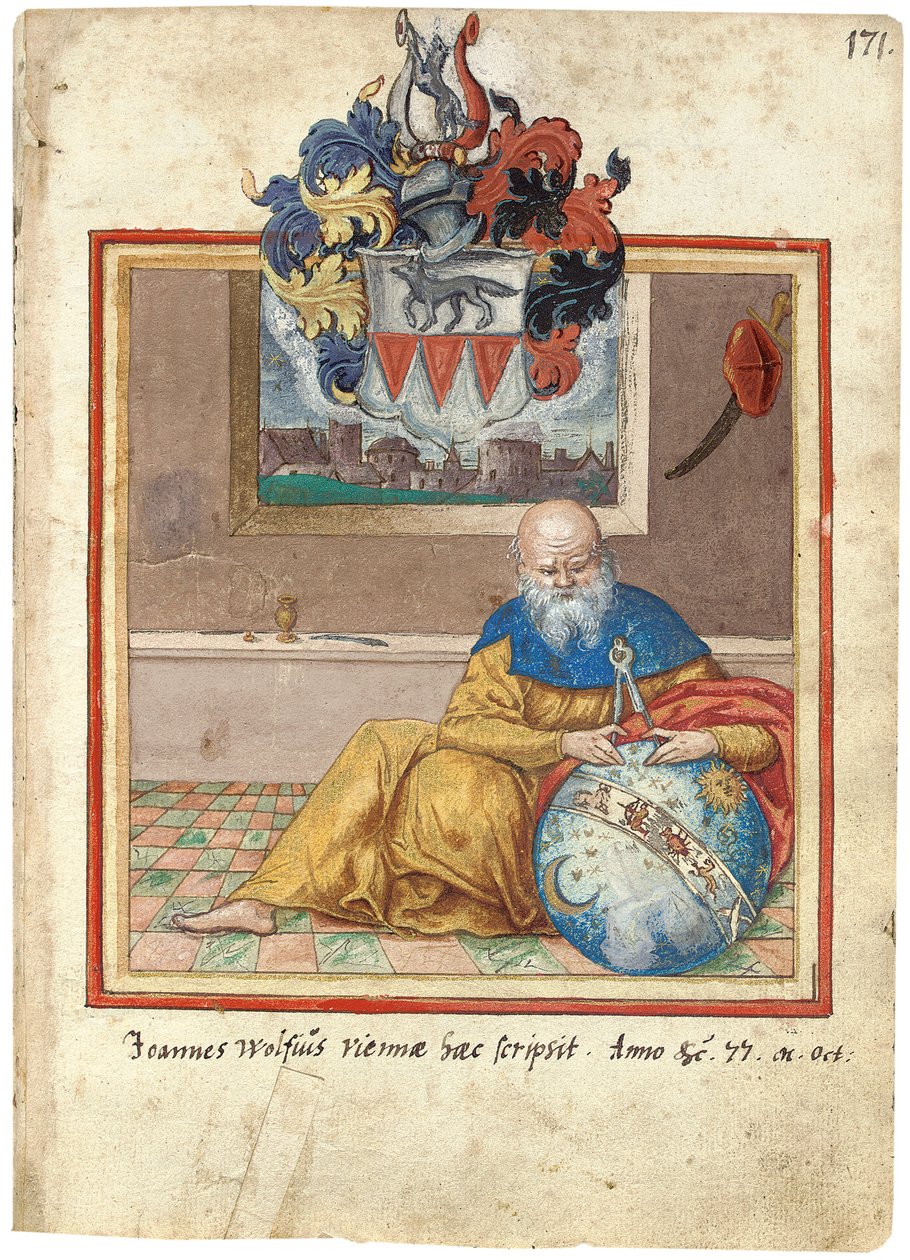 171.
Joannes Wolfius viennæ hæc scripsit. Anno &c. 77. m. Oct: